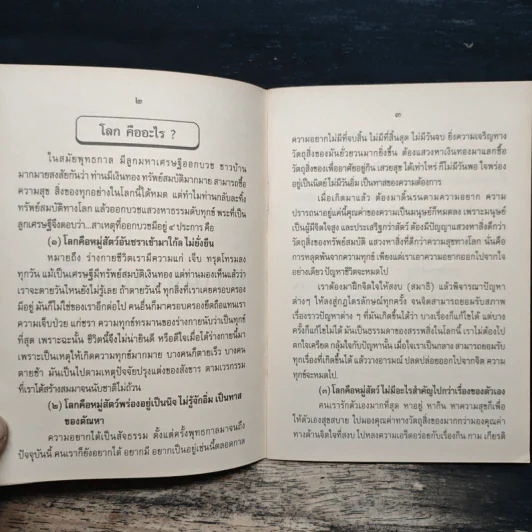 ๒
โลก คืออะไร ?
ในสมัยพุทธกาล มีลูกมหาเศรษฐีออกบวช ชาวบ้าน
มากมายสงสัยกันว่า ท่านมีเงินทอง ทรัพย์สมบัติมากมาย สามารถซื้อ
ความสุข สิ่งของทุกอย่างในโลกนี้ได้หมด แต่ทำไมท่านกลับละทิ้ง
ทรัพย์สมบัติทางโลก แล้วออกบวชแสวงหาธรรมดับทุกข์ พระที่เป็น
ลูกเศรษฐีจึงตอบว่า...สาเหตุที่ออกบวชมีอยู่ ๔ ประการ คือ
(๑) โลกคือหมู่สัตว์อันชราเข้ามาใกล้ ไม่ยั่งยืน
หมายถึง ร่างกายชีวิตเรามีความแก่ เจ็บ ทรุดโทรมลง
ทุกวัน แม้เป็นเศรษฐีมีทรัพย์สมบัติเงินทอง แต่ท่านมองเห็นแล้วว่า
เราจะตายวันไหนยังไม่รู้เลย ถ้าตายวันนี้ ทุกสิ่งที่เราเคยครอบครอง
มีอยู่ มันก็ไม่ใช่ของเราอีกต่อไป คนอื่นก็มาครอบครองยึดถือแทนเรา
ความเจ็บป่วย แก่ชรา ความทุกข์ทรมานของร่างกายนับว่าเป็นทุกข์
ที่สุด เพราะฉะนั้น ชีวิตนี้จึงไม่น่ายินดี หรือดีใจเมื่อได้ร่างกายนี้มา
เพราะเป็นเหตุให้เกิดความทุกข์มากมาย บางคนก็ตายเร็ว บางคน
ตายช้า มันเป็นไปตามเหตุปัจจัยปรุงแต่งของสังขาร ตามเวรกรรม
ที่เราได้สร้างสมมาจนนับชาติไม่ถ้วน
(๒) โลกคือหมู่สัตว์พร่องอยู่เป็นนิจ ไม่รู้จักอิ่ม เป็นทาส
ของตัณหา
ความอยากได้เป็นสัจธรรม ตั้งแต่ครั้งพุทธกาลมาจนถึง
ปัจจุบันนี้ คนเราก็ยังอยากได้ อยากมี อยากเป็นอยู่เช่นนี้ตลอดกาล
๓
ความอยากไม่มีที่จบสิ้น ไม่มีที่สิ้นสุด ไม่มีวันจบ ยิ่งความเจริญทาง
วัตถุสิ่งของมันยั่วยวนมากยิ่งขึ้น ต้องแสวงหาเงินทองมาแลกซื้อ
วัตถุสิ่งของเพื่ออาศัยอยู่กิน เสวยสุข ได้เท่าไหร่ ก็ไม่มีวันพอ ใจพร่อง
อยู่เป็นนิตย์ไม่มีวันอิ่ม เป็นทาสของความต้องการ
เมื่อเกิดมาแล้ว ต้องมาดิ้นรนตามความอยาก ความ
ปรารถนาอยู่แค่นี้คุณค่าของความเป็นมนุษย์ก็หมดลง เพราะมนุษย์
เป็นผู้มีจิตใจสูง และประเสริฐกว่าสัตว์ ต้องมีปัญญาแสวงหาสิ่งดีกว่า
วัตถุสิ่งของทรัพย์สมบัติ แสวงหาสิ่งที่ดีกว่าความสุขทางโลก นั่นคือ
การหลุดพ้นจากความทุกข์ เพียงแต่เราเอาความอยากออกไปจากใจ
อย่างเดียว ปัญหาชีวิตจะหมดไป
เราต้องมาฝึกจิตใจให้สงบ (สมาธิ) แล้วพิจารณาปัญหา
ต่างๆ ให้ลงสู่กฎไตรลักษณ์ทุกครั้ง จนจิตสามารถยอมรับสภาพ
เรื่องราวปัญหาต่าง ๆ ที่มันเกิดขึ้นได้ว่า บางเรื่องก็แก้ไขได้ แต่บาง
ครั้งก็แก้ไขไม่ได้ มันเป็นธรรมดาของสรรพสิ่งในโลกนี้ เราไม่ต้องไป
ตกใจเครียด กลุ้มใจกับปัญหานั้น เมื่อใจเราเป็นกลาง สามารถยอมรับ
ทุกเรื่องที่เกิดขึ้นได้ แล้ววางอารมณ์ ปลดปล่อยออกไปจากจิต ความ
ทุกข์จะหมดไป
(๓) โลกคือหมู่สัตว์ ไม่มีอะไรสำคัญไปกว่าเรื่องของตัวเอง
คนเรารักตัวเองมากที่สุด หาอยู่ หากิน หาความสุขก็เพื่อ
ให้ตัวเองสุขสบาย ไปมองคุณค่าทางวัตถุสิ่งของมากกว่ามองคุณค่า
ทางด้านจิตใจที่สงบ ไปหลงความเอร็ดอร่อยกับเรื่องกิน กาม เกียรติ